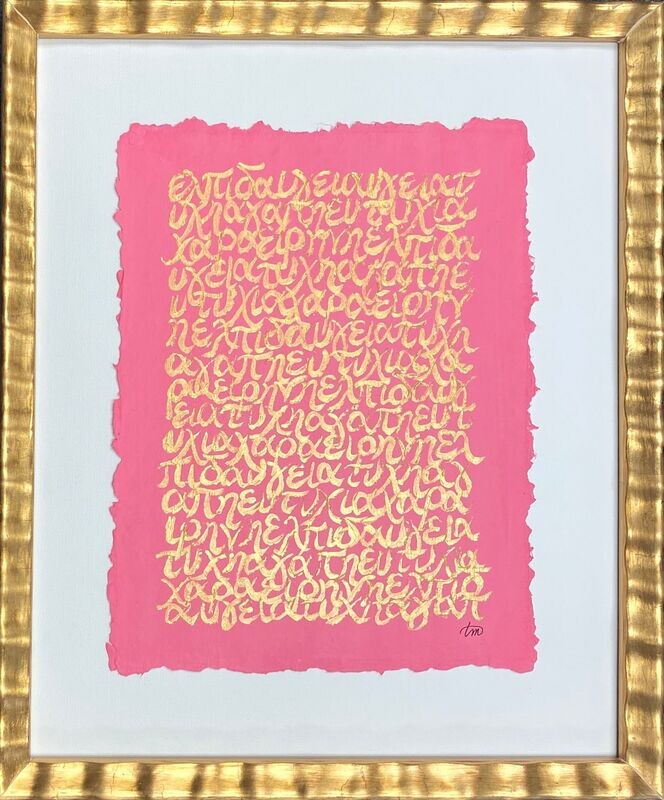 ελπιδαυγειαυγειατ
υχηαγαπηευτυχια
χαραειρηνηελπιδα
υγειατυχηαγαπηε
υτυχιαχαραειρην
ηελπιδαυγειατυχη
αγαπηευτυχιαχα
ραειρηνηελπιδαυγ
ειατυχηαγαπηευτ
υχιαχαραειρηνηελ
πιδαυγειατυχηαγ
απηευτυχιαχαρα
ειρηνηελπιδαυγεια
τυχηαγαπηευτυχια
χαραειρηνηελπιδ
αυγειατυχηαγαπ
tm